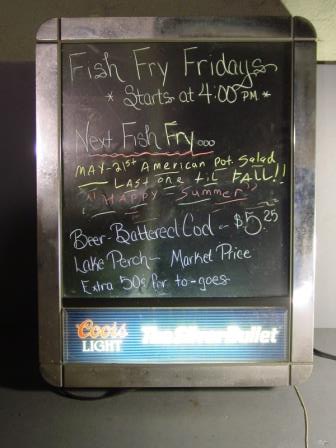 Fish Fry Fridays
* Starts at 4:00 PM *
Next Fish Fry...
MAY - 21st American Pot. Salad
LAST one til FALL!!
"HAPPY - Summer"
Beer-Battered Cod - $5.25
Lake Perch - Market Price
Extra 50¢ for to-goes
Coors
LIGHT
The Silver Bullet